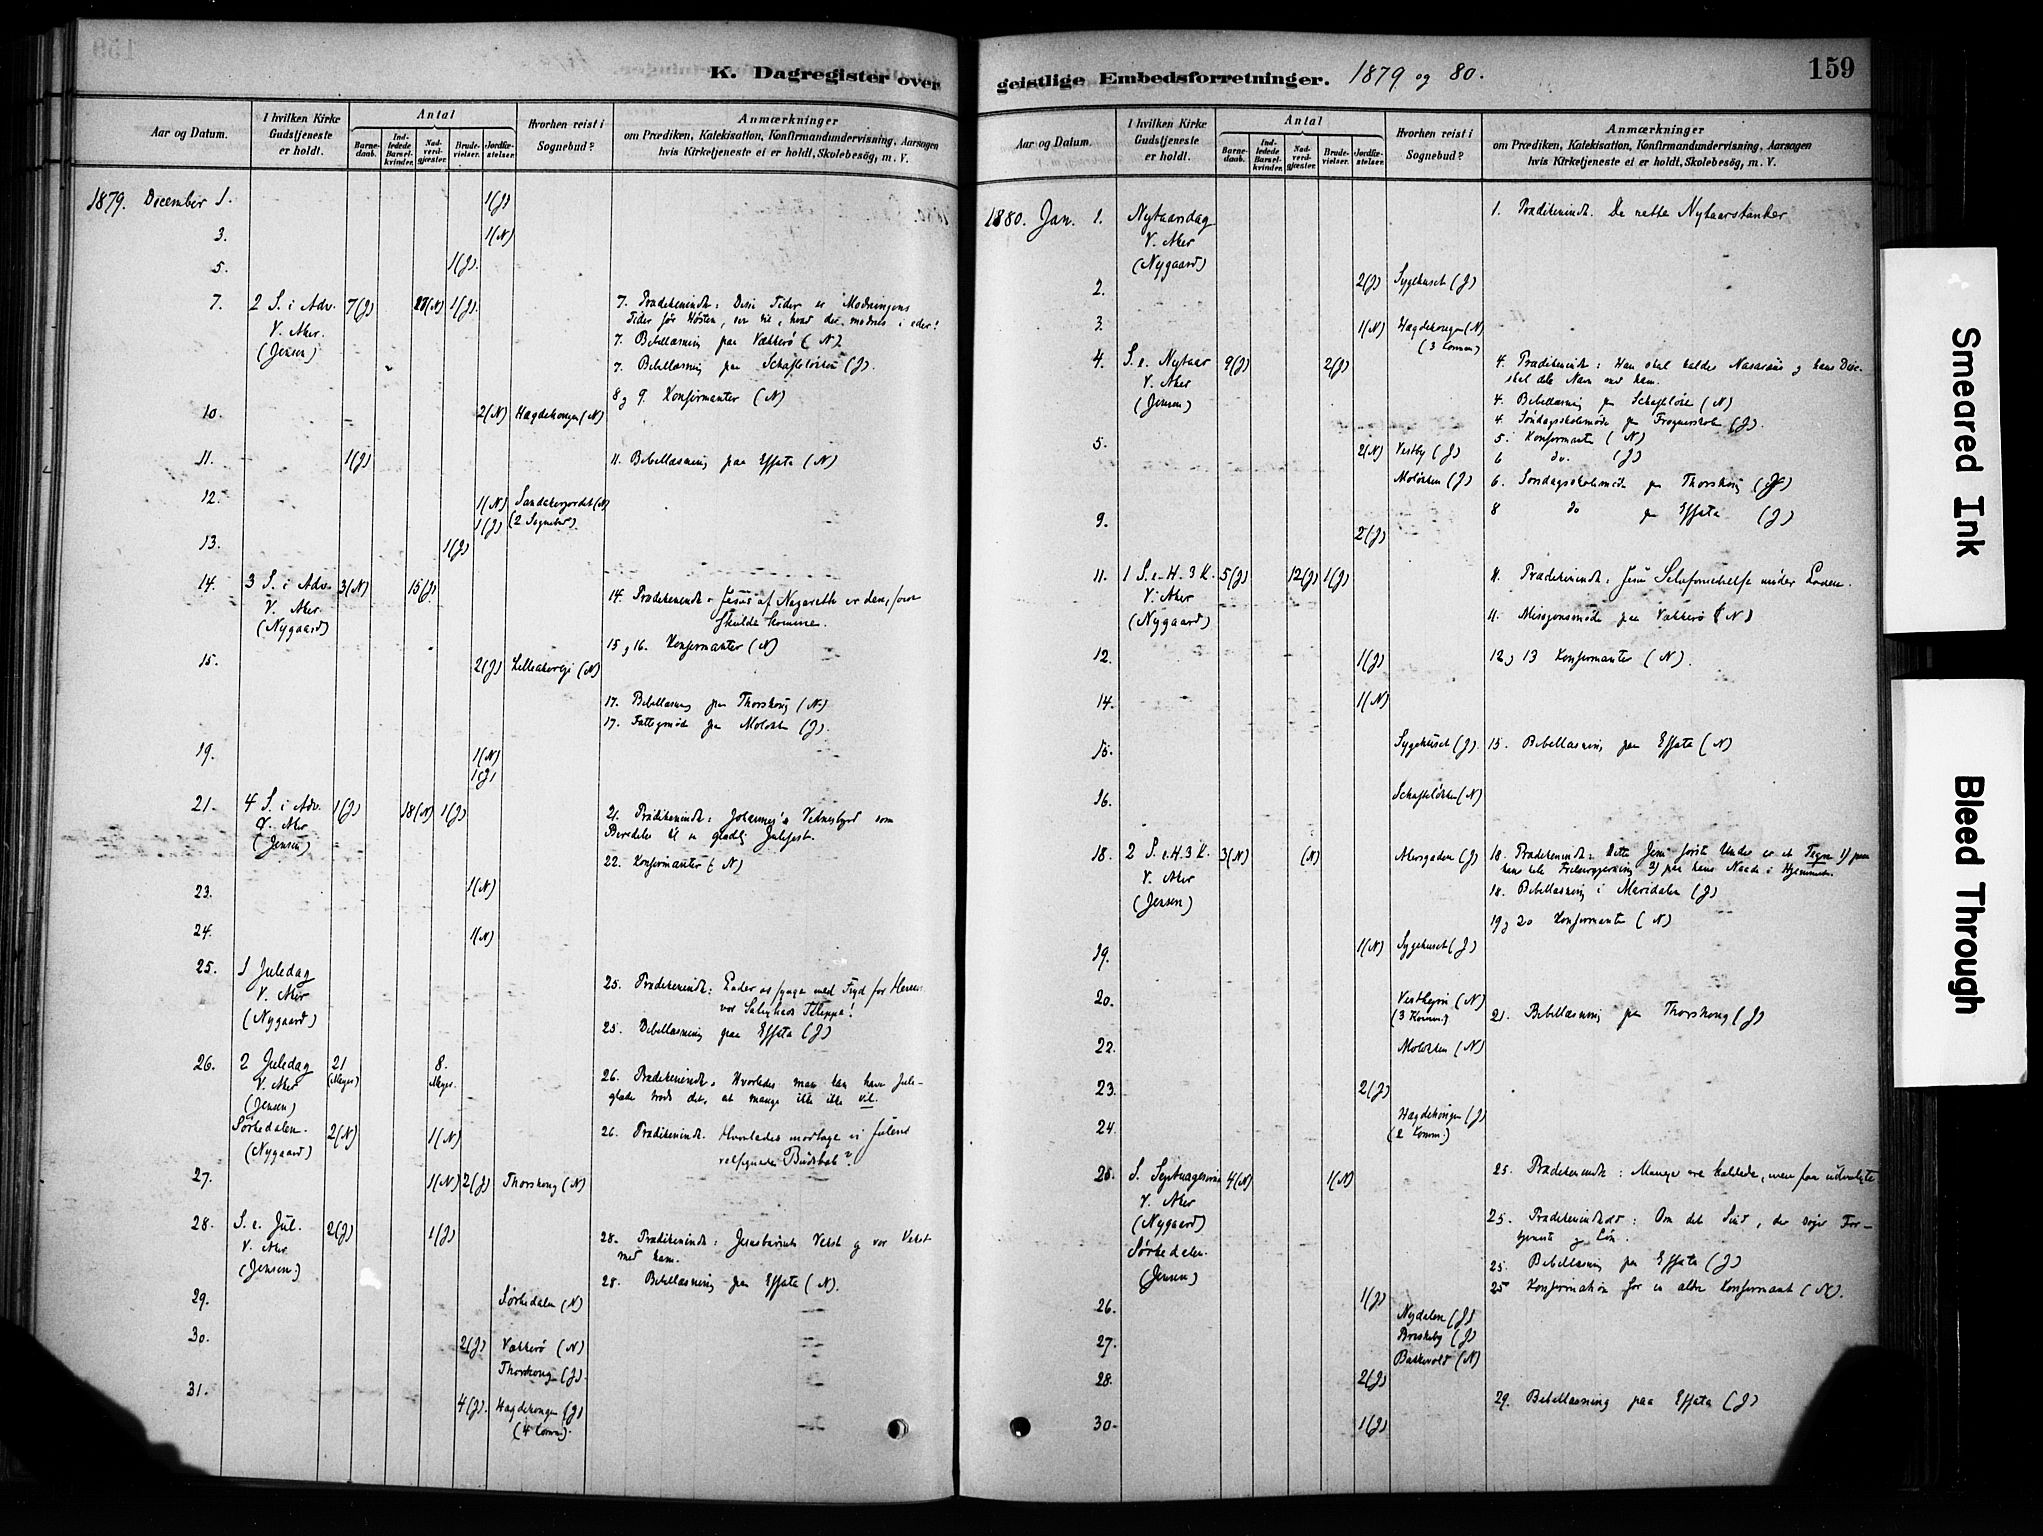 K. Dagregister over
Aar og Datum.
I hvilken Kirke Gudstjeneste er holdt.
Antal
Barne-daab.
Ind-ledede Barsel-kvinder.
Nad-verd-gjæster.
Brude-vielser.
Jordfæ-stelser.
Hvorhen reist i Sognebud?
Anmærkninger
om Prædiken, Katekisation, Konfirmandundervisning, Aarsagen
hvis Kirketjeneste ei er holdt, Skolebesög, m. V.
1879. December 1. 1(J)
3. 1(N)
5. 1(J).
7. 2 S. i Adv. V. Aker. (Jensen) 7(J) 27(N) 1(J).
7. Prædikenindh: Disse Tider er Modningens
Tider før Høsten, ser til, hvad der modnes i eder!
7. Bibellæsning paa Vækkerö (N)
7. Bibellæsning paa Schafteløkken (J).
8 og 9. Konfirmanter (N)
10. 2(N) Hægdehougen (N)
11. 1(J) 11. Bibellæsning paa Effata (N)
12. 1(N) 1(J) Sandakerjordet (N) (2 Sognebud)
13. 1(J)
14. 3 S. i Adv. V. Aker. (Nygaard) 3(N) 15(J)
14. Prædikenindh: Jesus af Nazareth er den, som
skulde komme.
15 og 16. Konfirmanter (N)
15. 2(J) Lilleakerveje (N)
17. Bibellæsning paa Thorshoug (N)
17. Fattigmöde paa Moløkken (J).
19. 1(N) 1(J)
21. 4 S. i Adv. V. Aker (Jensen) 1(J) 18(N) 1(J)
21. Prædikenindh: Johannes's Vidnesbyrd som
Beredelse til en glædelig Julefest.
22. Konfirmanter (N)
23. 1(N)
24. 1(N)
25. 1 Juledag V. Aker (Nygaard)
25. Prædikenindh: Lader os synge med Fryd for Herren
vor Saligheds Klippe!
25. Bibellæsning paa Effata (J)
26. 2 Juledag V. Aker (Jensen) 21 (Meyer) 8. Meyer.
26. Prædikenindh. Hvorledes man kan have Jule-
glæde trods det, at mange ikke ville vil.
Sørkedalen. (Nygaard) 2(N) 1(N)
26. Prædikenindh. Hvorledes modtage vi Julens
velsignede Budskab?
27. 1(N) 2(J) Thorshoug (N)
28. S. e. Jul. V. Aker (Jensen) 2(J) 1(J)
28. Prædikenindh: Jesusbarnets Vekst og vor Vekst
med ham.
28. Bibellæsning paa Effata (N).
29. Sørkedalen (N)
30. 2(J) Vækkerö (N)
Thorshoug (J).
31. 4(J). Hægdehougen (J) (4 Komm).
geistlige Embedsforretninger. 1879 og 80.
159
Aar og Datum.
I hvilken Kirke Gudstjeneste er holdt.
Antal
Barne-daab.
Ind-ledede Barsel-kvinder.
Nad-verd-gjæster.
Brude-vielser.
Jordfæ-stelser.
Hvorhen reist i Sognebud?
Anmærkninger
om Prædiken, Katekisation, Konfirmandundervisning, Aarsagen
hvis Kirketjeneste ei er holdt, Skolebesög, m. V.
1880. Jan. 1. Nytaarsdag V. Aker (Nygaard)
1. Prædikenindh. De rette Nytaarstanker
2. 2(J) Sygehuset (J)
3. 1(N) Hægdehougen (N) (3 Komm)
4. S. e. Nytaar V. Aker (Jensen) 9(J) 2(J)
4. Prædikenindh: Han skal kaldes Nasaræus og hans Disc.
skal dele Navn med ham.
4. Bibellæsning paa Schafteløkk (N)
4. Søndagsskolemøde paa Frognerskole (J).
5. 2(N) Vestby (J)
5. Konfirmanter (N)
6 do. (J)
Moløkken (J)
6. Søndagsskolemøde paa Thorshoug (J)
8 do paa Effata (J)
9. 2(J)
11. 1 S. e. H. 3 K. V. Aker (Nygaard) 5(J) 12(J) 1(J)
11. Prædikenindh: Jesu Selvfornedrelse under Loven.
11. Missionsmøde paa Vækkerö (N)
12. 1(J) 12 og 13 Konfirmanter (N).
14. 1(N)
15. Sygehuset (J). 15. Bibellæsning paa Effata (N)
16. Schafteløkken (N)
18. 2 S. e. H. 3 K. V. Aker (Jensen) 3(N) (N) Akersgaden (J)
18. Prædikenindh: Dette Jesu første Under er et Tegn 1) paa
hans hele Frelsergjerning 2) paa hans Naade i Hjemmet.
18. Bibellæsning i Maridalen (J)
19 og 20 Konfirmanter (N)
19. 1(N) Sygehuset (J)
20. Vestheim (N) (3 Komm.)
21. Bibellæsning paa Thorshoug (J)
22. Moløkken (N)
23. 2(J)
24. Hægdehougen (J) (2 Komm.)
25. S. Septuagesima V. Aker (Nygaard) 4(N) 1(N)
25. Prædikenindh: Mange ere kaldede, men faa udvalgte
Sørkedalen. (Jensen)
25. Prædikenindhold: Om det Sind, der søger For-
tjeneste og Løn.
25. Bibellæsning paa Effata (J)
25 Konfirmation for en ældre Konfirmant (N).
26. 1(J) Nydalen (J)
27. Briskeby (J)
Bakkevold (N)
28. 2(J)
29. Bibellæsning paa Effata (J)
30. 1(J)
Smeared Ink
Bleed Through